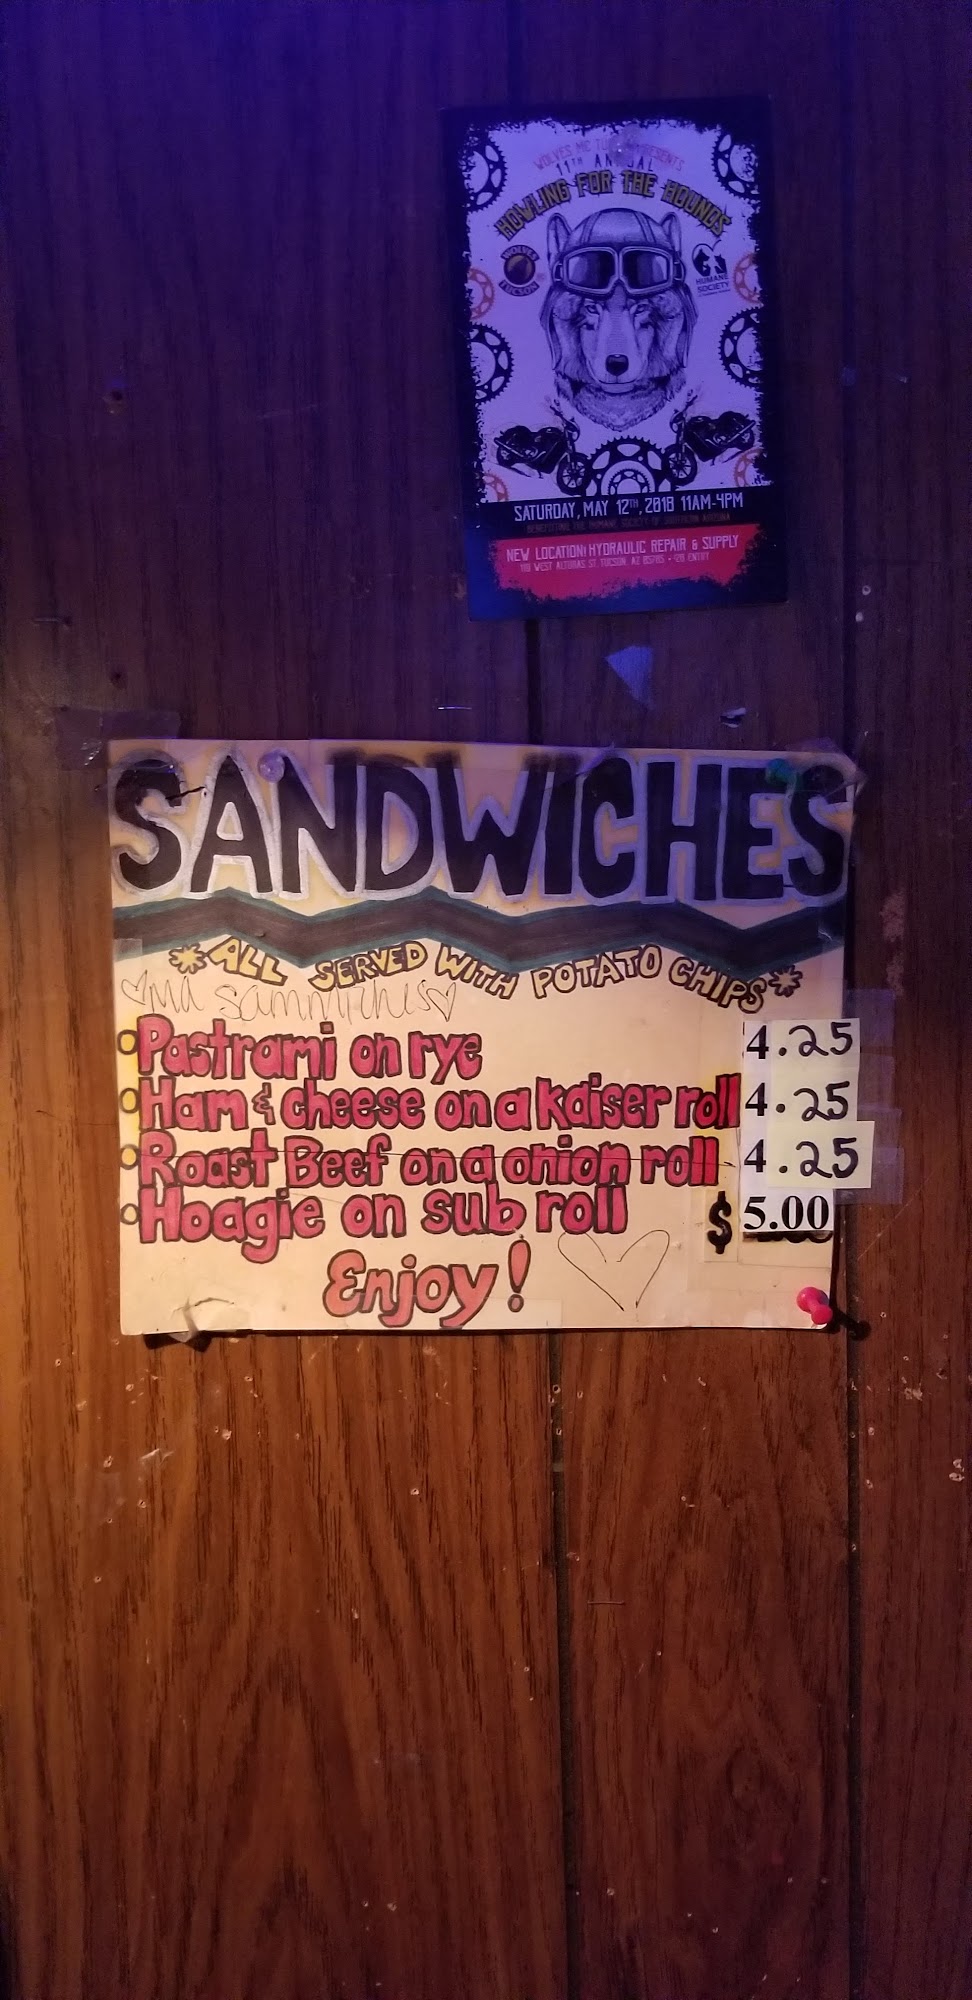 WOLVES MC TUCSON PRESENTS
11TH ANNUAL
HOWLING FOR THE HOUNDS
WOLVES
TUCSON
HUMANE
SOCIETY
SATURDAY, MAY 12TH, 2018 11AM-4PM
BENEFITTING THE HUMANE SOCIETY OF SOUTHERN ARIZONA
NEW LOCATION: HYDRAULIC REPAIR & SUPPLY
ST. TUCSON, AZ 85705 • ENTRY
SANDWICHES
*ALL SERVED WITH POTATO CHIPS*
Pastrami on rye 4.25
Ham & cheese on a kaiser roll 4.25
Roast Beef on a onion roll 4.25
Hoagie on sub roll $ 5.00
Enjoy!